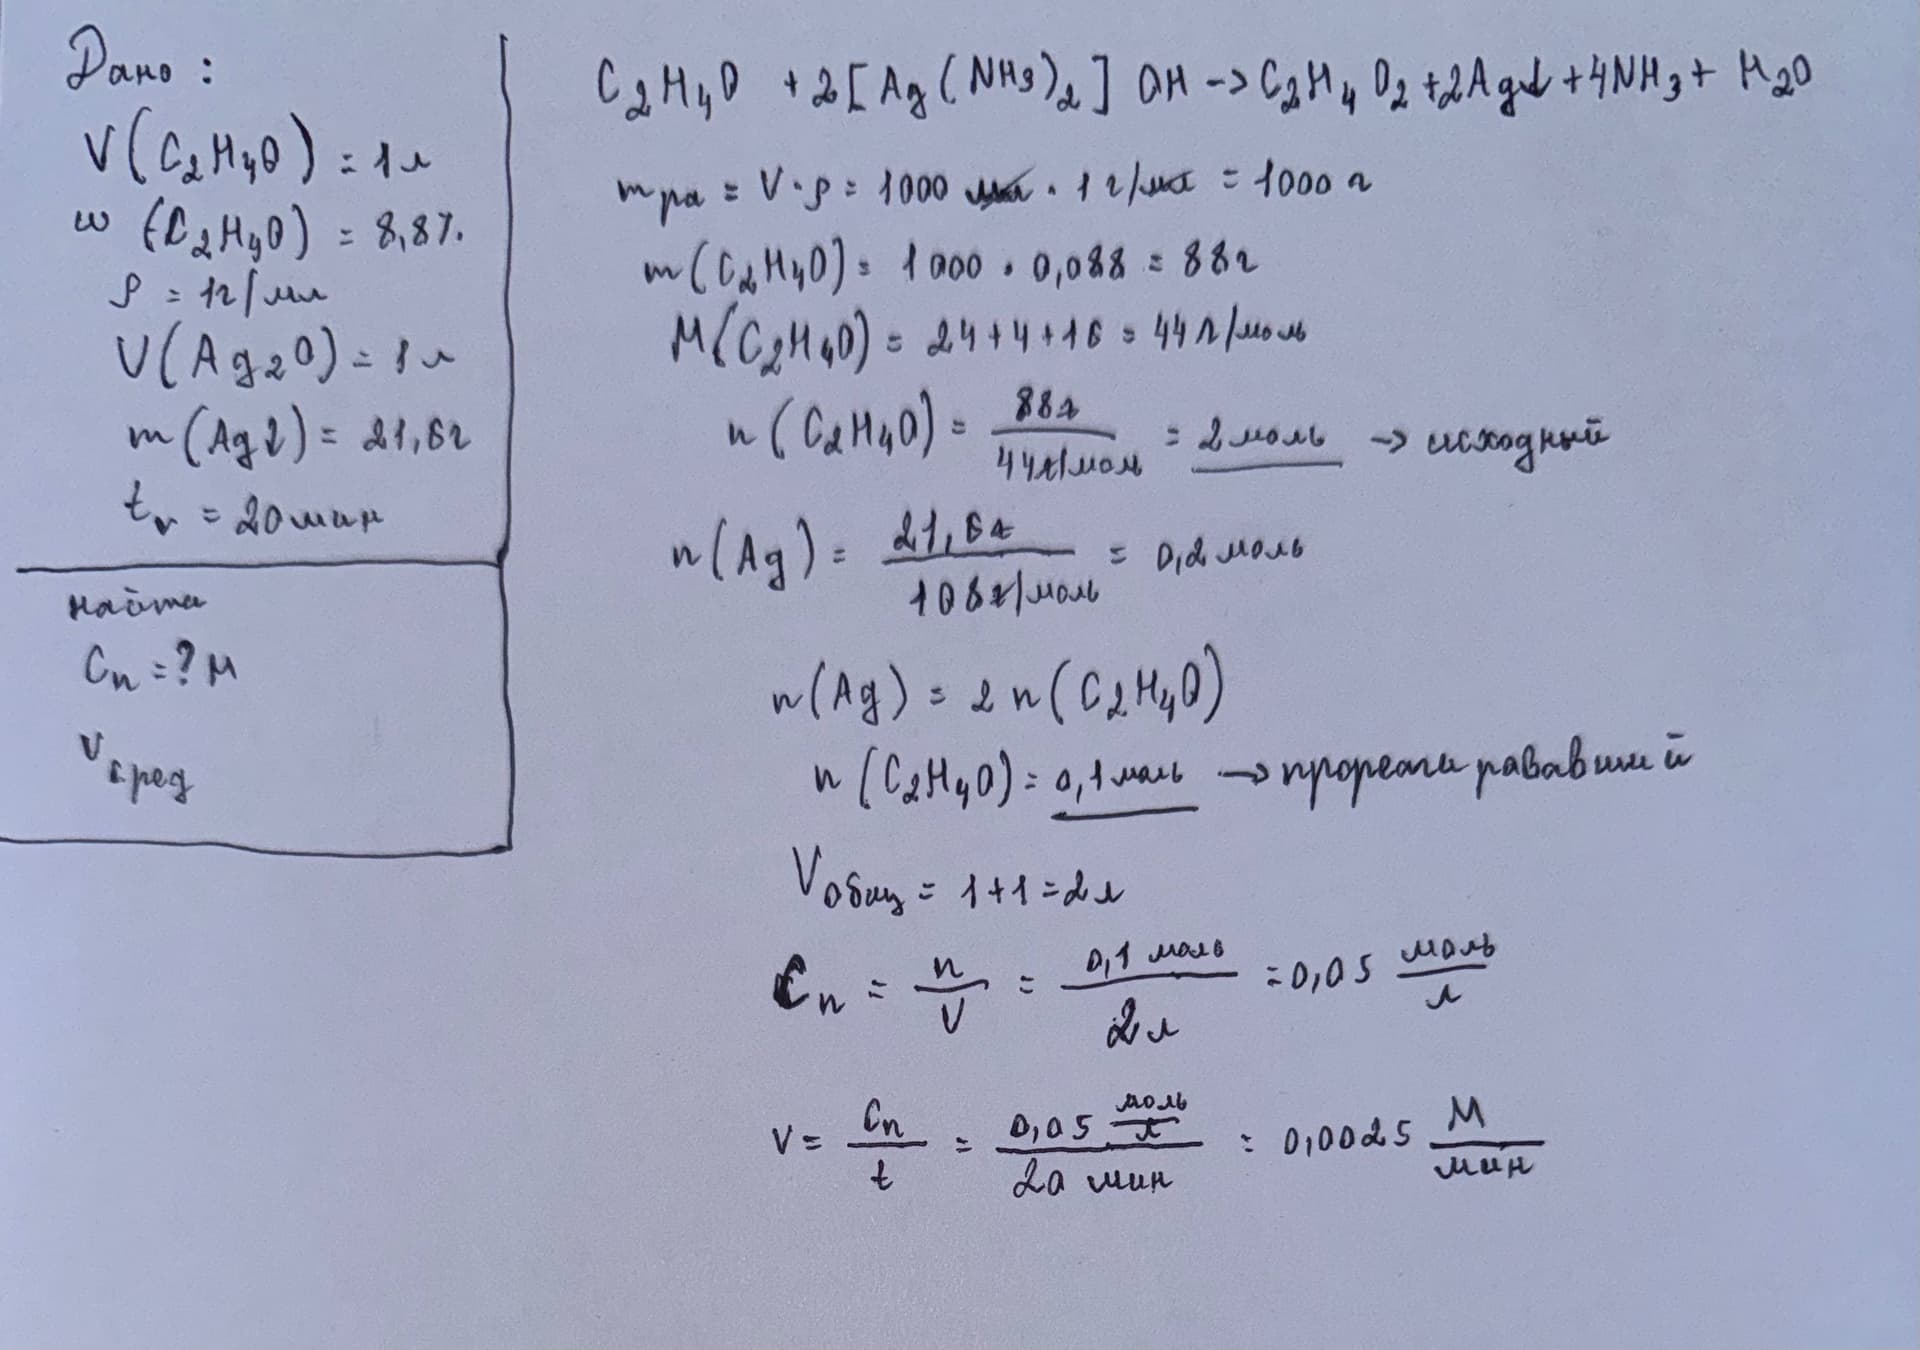 Дано:
V(C₂H₄O) = 1 л
ω (C₂H₄O) = 8,8%.
ρ = 1г/мл
V(Ag₂O) = 1 л
m(Ag↓) = 21,6г
tᵥ = 20мин
найти
Cₙ = ? M
Vсред
C₂H₄O + 2[Ag(NH₃)₂]OH -> C₂H₄O₂ + 2Ag↓ + 4NH₃ + H₂O
mра = V · ρ = 1000 мл · 1 г/мл = 1000 г
m(C₂H₄O) = 1000 · 0,088 = 88г
M(C₂H₄O) = 24 + 4 + 16 = 44 г/моль
n(C₂H₄O) = 88г / 44г/моль = 2 моль -> исходный
n(Ag) = 21,6г / 108г/моль = 0,2 моль
n(Ag) = 2 n(C₂H₄O)
n(C₂H₄O) = 0,1 моль -> прореагировавший
Vобщ = 1 + 1 = 2 л
Cₙ = n / V = 0,1 моль / 2 л = 0,05 моль / л
v = Cₙ / t = 0,05 моль/л / 20 мин = 0,0025 M / мин